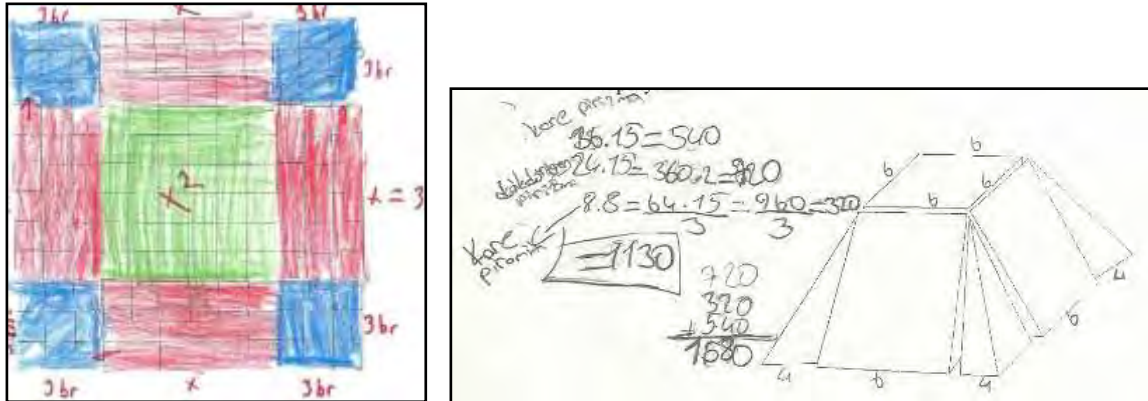 3br x 3br
3br
x²
x = 3
3br
3br x 3br
kare prizma
36.15=540
24.15=360.2=720
8.8=64.15=960=320
3 3
kare piramit
=1130
720
320
+540
1580
6
6
6
6
4
6
4
6
4